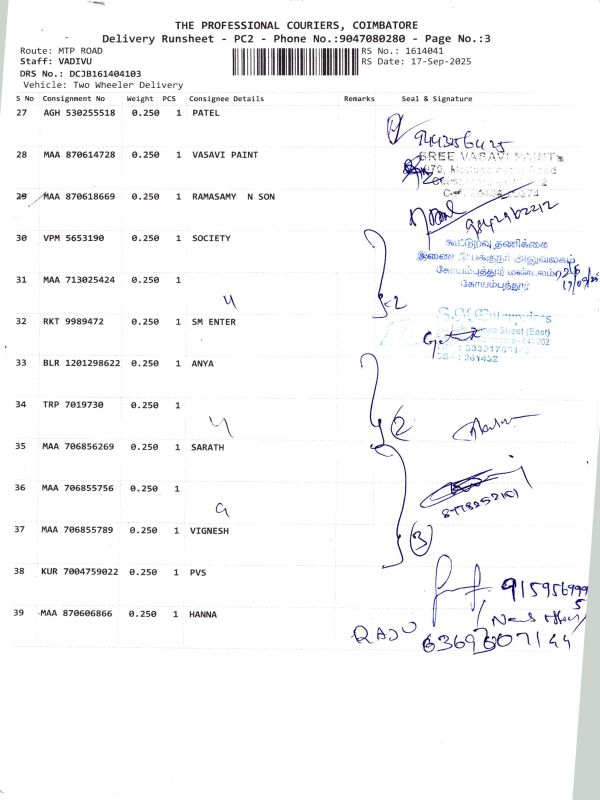 THE PROFESSIONAL COURIERS, COIMBATORE
Delivery Runsheet - PC2 - Phone No.:9047080280 - Page No.:3
Route: MTP ROAD RS No.: 1614041
Staff: VADIVU RS Date: 17-Sep-2025
DRS No.: DCJB161404103
Vehicle: Two Wheeler Delivery
S No Consignment No Weight PCS Consignee Details Remarks Seal & Signature
27 AGH 530255518 0.250 1 PATEL
28 MAA 870614728 0.250 1 VASAVI PAINT
SREE VASAVI PAINTS
29 MAA 870618669 0.250 1 RAMASAMY N SON
9842962212
30 VPM 5653190 0.250 1 SOCIETY
கூட்டுறவு தணிக்கை
இணை இயக்குநர் அலுவலகம்
31 MAA 713025424 0.250 1
கோயம்புத்தூர் மண்டலம்
கோயம்புத்தூர்
32 RKT 9989472 0.250 1 SM ENTER
Street (East)
33 BLR 1201298622 0.250 1 ANYA
34 TRP 7019730 0.250 1
2
35 MAA 706856269 0.250 1 SARATH
36 MAA 706855756 0.250 1
37 MAA 706855789 0.250 1 VIGNESH
3
38 KUR 7004759022 0.250 1 PVS
915956999
5
39 MAA 870606866 0.250 1 HANNA
RAJU 6369607144